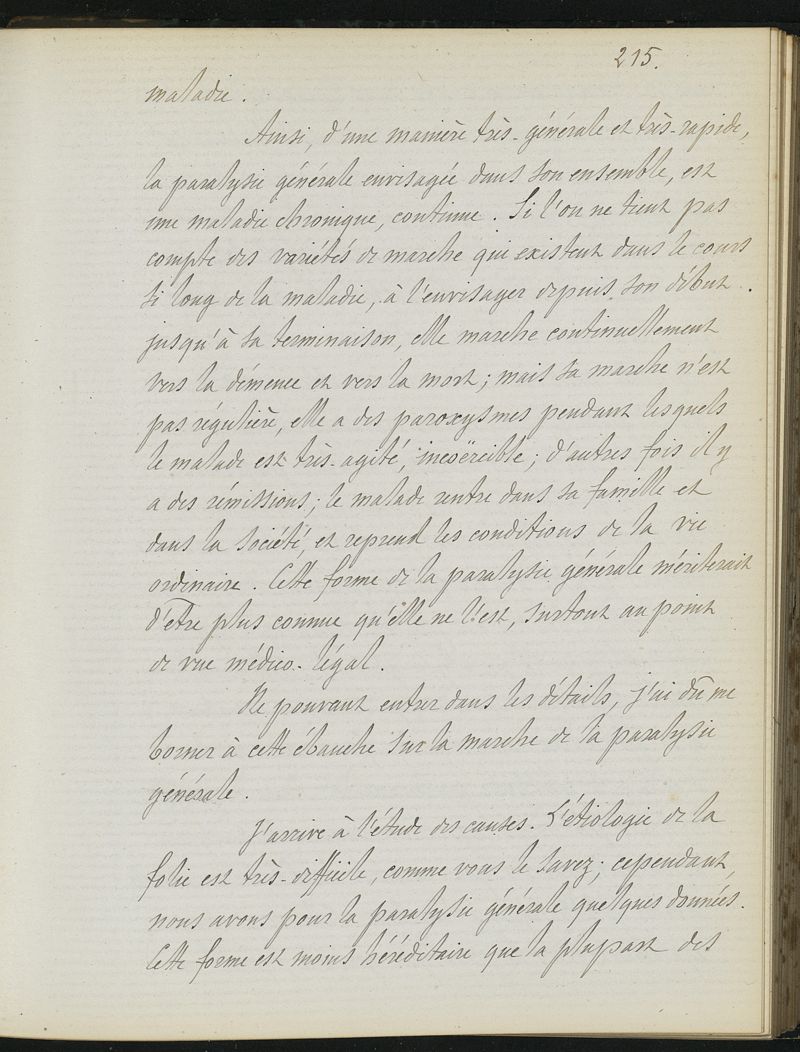 215.
maladie.
Ainsi, d'une manière très-générale et très-rapide,
la paralysie générale envisagée dans son ensemble, est
une maladie chronique, continue. Si l'on ne tient pas
compte des variétés de marche qui existent dans le cours
si long de la maladie, à l'envisager depuis son début
jusqu'à sa terminaison, elle marche continuellement
vers la démence et vers la mort; mais sa marche n'est
pas régulière, elle a des paroxysmes pendant lesquels
le malade est très-agité, incoërcible; d'autres fois il y
a des rémissions; le malade rentre dans sa famille et
dans la société, et reprend les conditions de la vie
ordinaire. Cette forme de la paralysie générale mériterait
d'être plus connue qu'elle ne l'est, surtout au point
de vue médico-légal.
Ne pouvant entrer dans les détails, j'ai dû me
borner à cette ébauche sur la marche de la paralysie
générale.
J'arrive à l'étude des causes. L'étiologie de la
folie est très-difficile, comme vous le savez; cependant,
nous avons pour la paralysie générale quelques données.
Cette forme est moins héréditaire que la plupart des